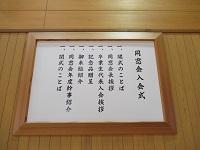 同窓会入会式
一、開式のことば
一、同窓会長挨拶
一、卒業生代表入会挨拶
一、記念品贈呈
一、御来賓紹介
一、同窓会年度幹事紹介
一、閉式のことば